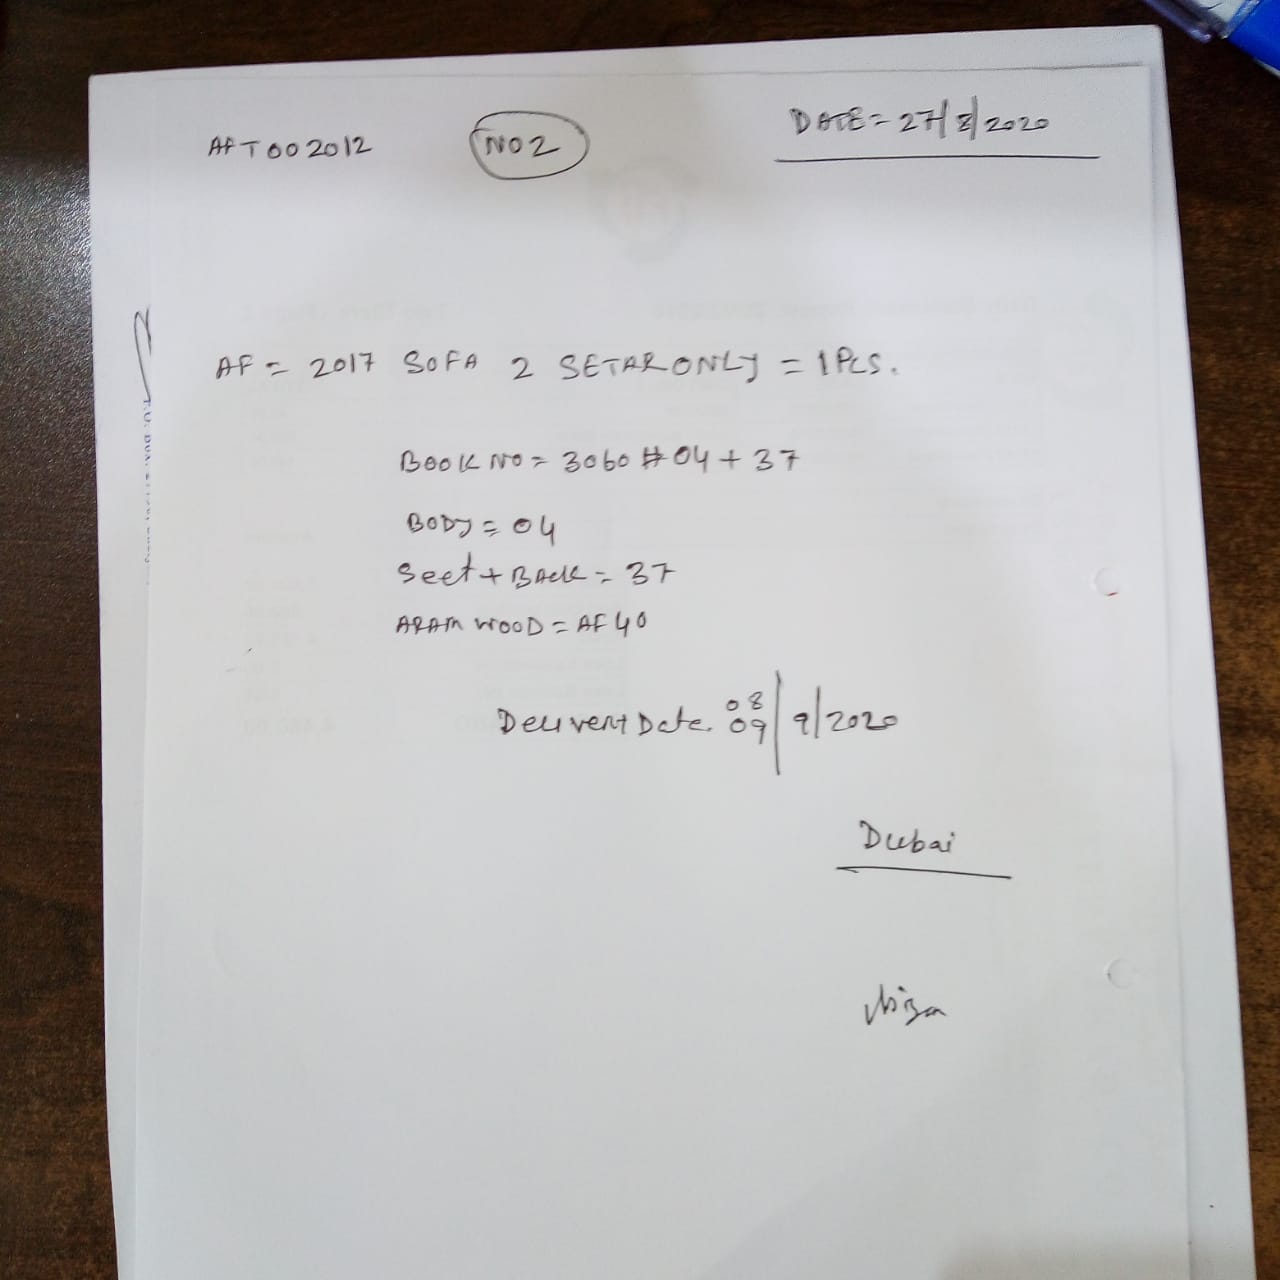 AFT002012
NO2
DATE = 27/8/2020
AF = 2017 SOFA 2 SETAR ONLY = 1 PCS.
BOOK NO = 3060 # 04 + 37
BODY = 04
Seet + BACK = 37
ARAM WOOD = AF 40
Delivert Date. 08
09/9/2020
Dubai